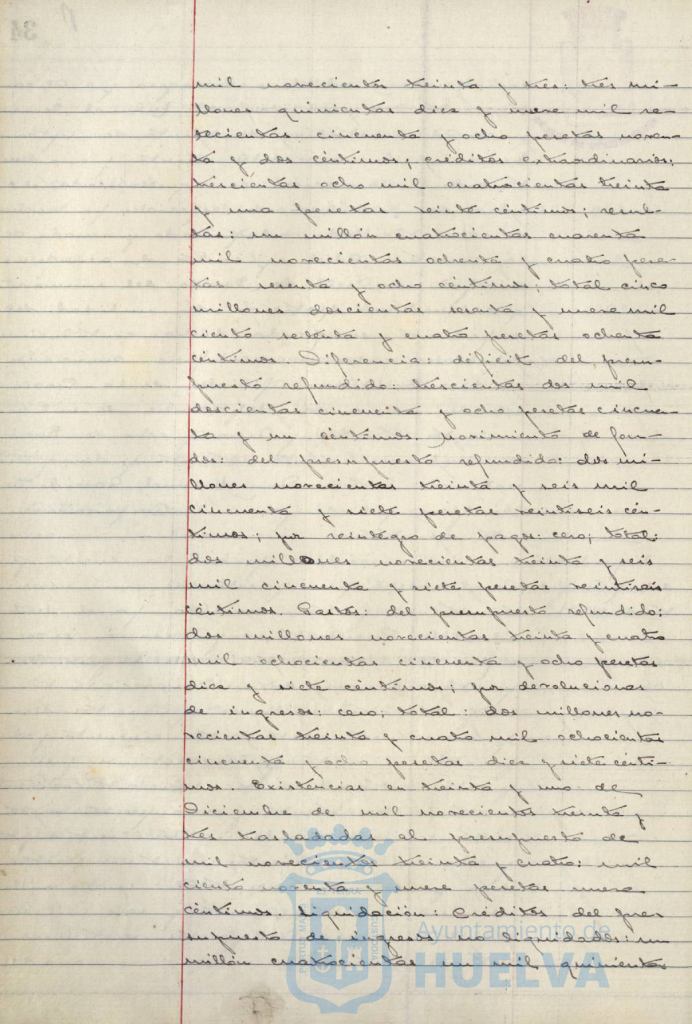 mil novecientos treinta y tres: tres mi-
llones quinientas diez y nueve mil se-
tecientas cincuenta y ocho pesetas noven-
ta y dos céntimos; créditos extraordinarios;
trescientas ocho mil cuatrocientas treinta
y una pesetas veinte céntimos; resul-
tas: un millón cuatrocientas cuarenta
mil novecientas ochenta y cuatro pese-
tas sesenta y ocho céntimos; total cinco
millones doscientas sesenta y nueve mil
ciento setenta y cuatro pesetas ochenta
céntimos. Diferencia: déficit del presu-
puesto refundido: trescientas dos mil
doscientas cincuenta y ocho pesetas cincuen-
ta y un céntimos. Movimiento de fon-
dos: del presupuesto refundido: dos mi-
llones novecientas treinta y seis mil
cincuenta y siete pesetas veintiseis cén-
timos; por reintegro de pagos: cero; total:
dos millones novecientas treinta y seis
mil cincuenta y siete pesetas veintiseis
céntimos. Gastos: del presupuesto refundido:
dos millones novecientas treinta y cuatro
mil ochocientas cincuenta y ocho pesetas
diez y siete céntimos; por devoluciones
de ingresos: cero; total: dos millones no-
vecientas treinta y cuatro mil ochocientas
cincuenta y ocho pesetas diez y siete cénti-
mos. Existencias en treinta y uno de
Diciembre de mil novecientos treinta y
tres trasladadas al presupuesto de
mil novecientos treinta y cuatro: mil
ciento noventa y nueve pesetas nueve
céntimos. Liquidación: Créditos del pre-
supuesto de ingresos no liquidados: un
millón cuatrocientas un mil quinientas
Ayuntamiento de
HUELVA